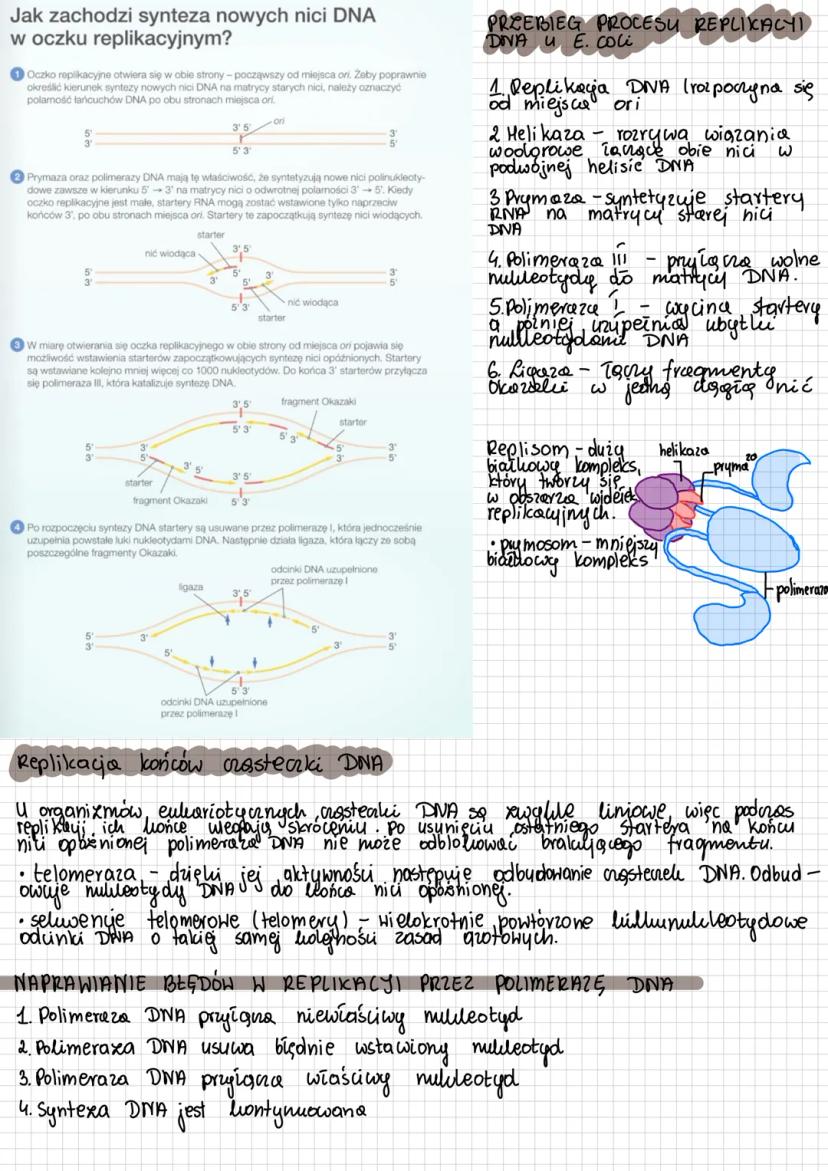 Jak zachodzi synteza nowych nici DNA
w oczku replikacyjnym?
1 Oczko replikacyjne otwiera się w obie strony – począwszy od miejsca ori. Żeby poprawnie
określić kierunek syntezy nowych nici DNA na matrycy starych nici, należy oznaczyć
polarność łańcuchów DNA po obu stronach miejsca ori.
ori
3' 5'
5' 3'
3' 5'
5' 3'
2 Prymaza oraz polimerazy DNA mają tę właściwość, że syntetyzują nowe nici polinukleoty-
dowe zawsze w kierunku 5' → 3' na matrycy nici o odwrotnej polarności 3' → 5'. Kiedy
oczko replikacyjne jest małe, startery RNA mogą zostać wstawione tylko naprzeciw
końców 3', po obu stronach miejsca ori. Startery te zapoczątkują syntezę nici wiodących.
starter
nić wiodąca
3' 5'
5' 3'
5' 3'
3' 5'
3' 5'
5' 3'
nić wiodąca
starter
3 W miarę otwierania się oczka replikacyjnego w obie strony od miejsca ori pojawia się
możliwość wstawienia starterów zapoczątkowujących syntezę nici opóźnionych. Startery
są wstawiane kolejno mniej więcej co 1000 nukleotydów. Do końca 3' starterów przyłącza
się polimeraza III, która katalizuje syntezę DNA.
3' 5'
fragment Okazaki
starter
5' 3'
5' 3'
5' 3' 5' 3'
3' 5' 3' 5'
3' 5'
3' 5'
starter
fragment Okazaki
5' 3'
4 Po rozpoczęciu syntezy DNA startery są usuwane przez polimerazę I, która jednocześnie
uzupełnia powstałe luki nukleotydami DNA. Następnie działa ligaza, która łączy ze sobą
poszczególne fragmenty Okazaki.
odcinki DNA uzupełnione
przez polimerazę I
ligaza
3' 5'
5'
5' 3' 3'
3' 3' 5'
5'
5' 3'
odcinki DNA uzupełnione
przez polimerazę I
PRZEBIEG PROCESU REPLIKACYI
DNA u E. coli
1. Replikacja DNA (rozpoczyna się
od miejsca ori
2 Helikaza – rozrywa wiązania
wodorowe łączące obie nici w
podwójnej helisie DNA
3 Prymaza – syntetyzuje startery
RNA na matrycy starej nici
DNA
4. Polimeraza III – przyłącza wolne
nukleotydy do matrycy DNA.
5. Polimeraza I – wycina startery
a później uzupełnia ubytki
nukleotydami DNA
6. Ligaza – łączy fragmenty
Okazaki w jedną ciągłą nić
Replisom – duży
białkowy kompleks,
który tworzy się
w obszarze widełek
replikacyjnych.
• prymosom – mniejszy
białkowy kompleks
helikaza
prymaza
polimeraza
Replikacja końców cząsteczki DNA
U organizmów eukariotycznych cząsteczki DNA są zwykle liniowe, więc podczas
replikacji ich końce ulegają skróceniu. Po usunięciu ostatniego startera na końcu
nici opóźnionej polimeraza DNA nie może odblokować brakującego fragmentu.
• telomeraza – dzięki jej aktywności następuje odbudowanie cząsteczek DNA. Odbud –
owuje nukleotydy DNA do końca nici opóźnionej.
• sekwencje telomerowe (telomery) – wielokrotnie powtórzone kilkunukleotydowe
odcinki DNA o takiej samej kolejności zasad azotowych.
NAPRAWIANIE BŁĘDÓW W REPLIKACYJ PRZEZ POLIMERAZĘ DNA
1. Polimeraza DNA przyłącza niewłaściwy nukleotyd
2. Polimeraza DNA usuwa błędnie wstawiony nukleotyd
3. Polimeraza DNA przyłącza właściwy nukleotyd
4. Synteza DNA jest kontynuowana